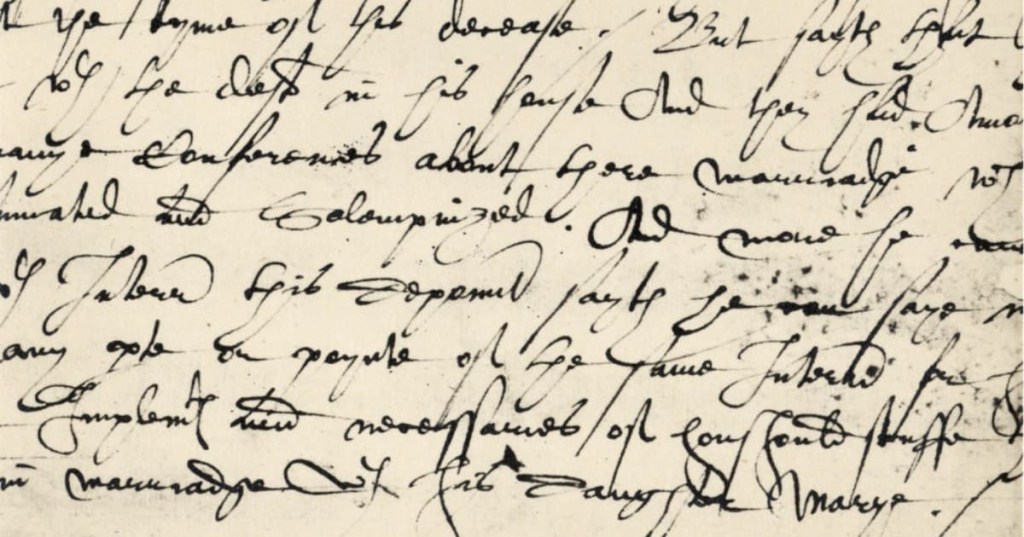 the tyme of his decease. But sayth that
wch the deft in his house And they had Amo
manye Conferences about there marriadge wch
summated and Solempnized. And more he can
Interr this deponnt sayth he can saye n
any pte or poynte of the same Interr for
Implemts and necessaries of houshould stuffe
in marriadge wth his daughter Marye.